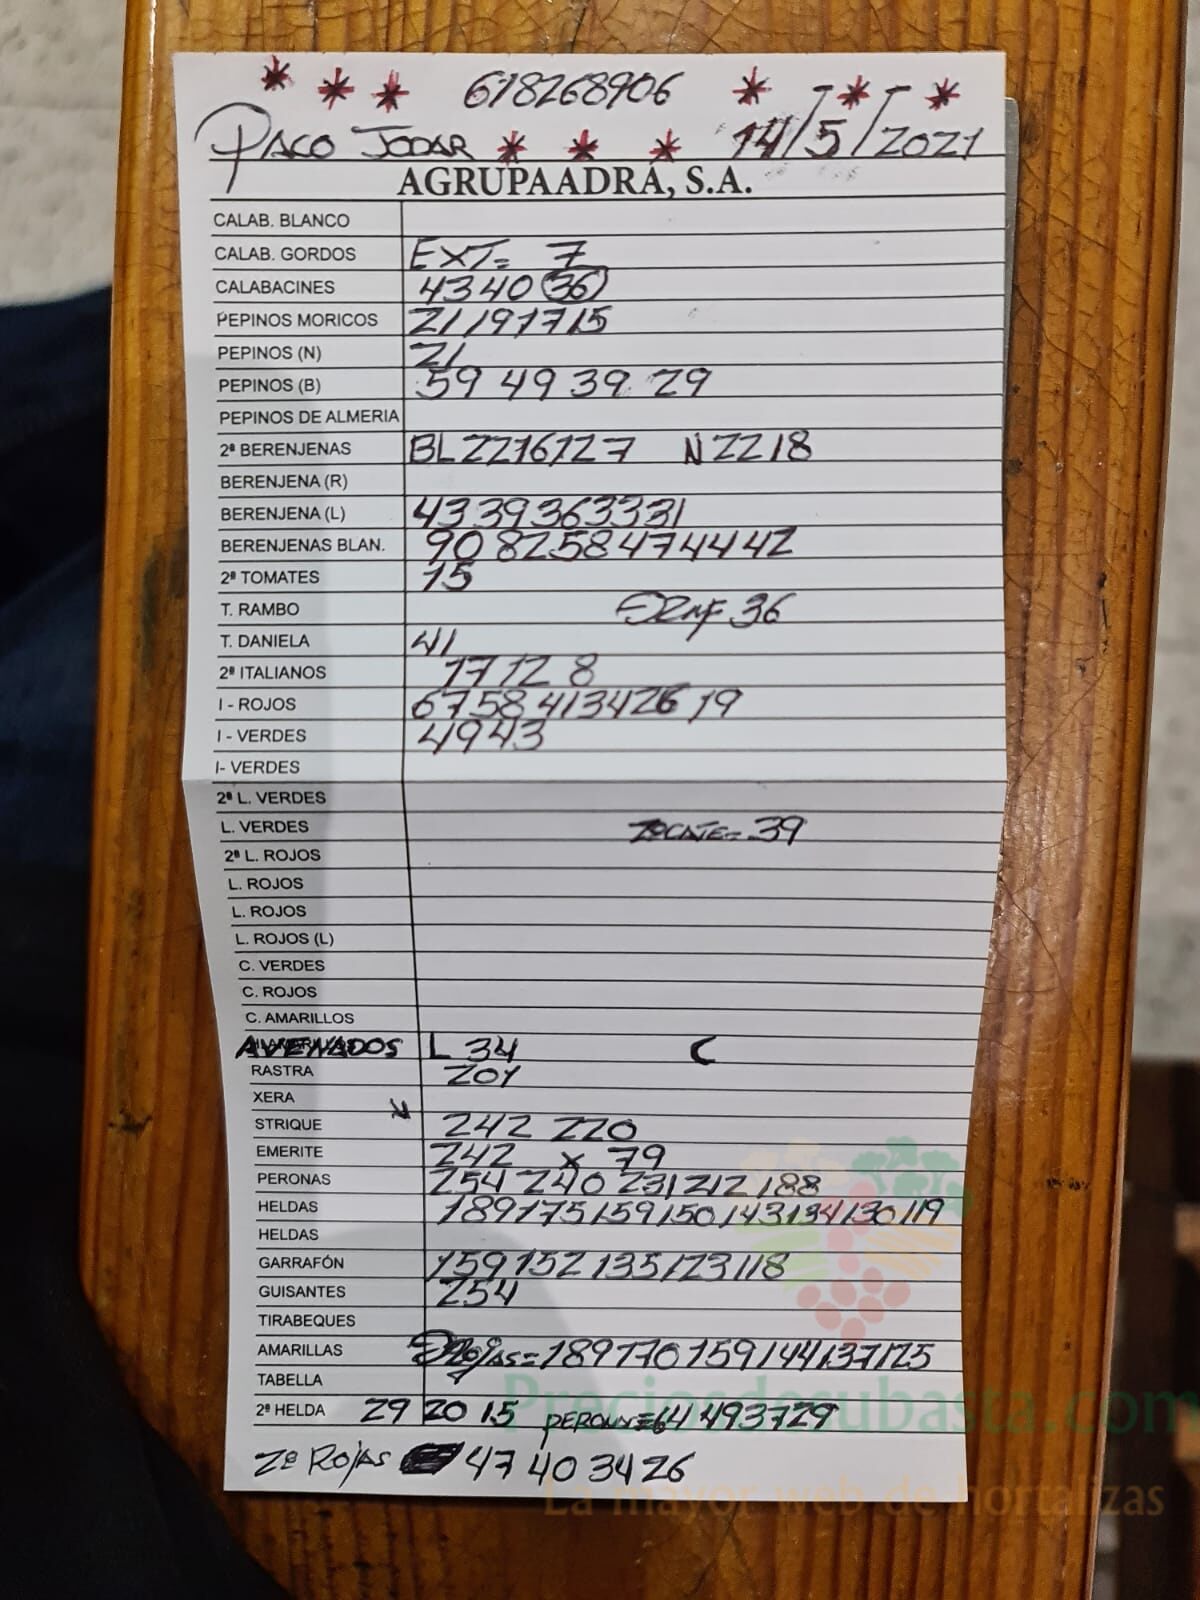 * * * 678268906 * * *
PACO JODAR * * * 14/5/2021
AGRUPAADRA, S.A.
CALAB. BLANCO
CALAB. GORDOS EXT= 7
CALABACINES 43 40 36
PEPINOS MORICOS 21 19 17 15
PEPINOS (N) 21
PEPINOS (B) 59 49 39 29
PEPINOS DE ALMERIA
2ª BERENJENAS BL 22 16 12 7 N 22 18
BERENJENA (R)
BERENJENA (L) 43 39 36 33 31
BERENJENAS BLAN. 90 82 58 47 44 42
2ª TOMATES 15
T. RAMBO 36
T. DANIELA 41
2ª ITALIANOS 17 12 8
I - ROJOS 67 58 41 34 26 19
I - VERDES 49 43
I- VERDES
2ª L. VERDES
L. VERDES 39
2ª L. ROJOS
L. ROJOS
L. ROJOS
L. ROJOS (L)
C. VERDES
C. ROJOS
C. AMARILLOS
AVENADOS L 34 C
RASTRA 201
XERA
STRIQUE 242 220
EMERITE 242 x 79
PERONAS 254 240 231 212 188
HELDAS 189 175 159 150 143 134 130 119
HELDAS
GARRAFÓN 159 152 135 123 118
GUISANTES 254
TIRABEQUES
AMARILLAS ROJAS= 189 170 159 144 137 125
TABELLA
2ª HELDA 29 20 15 PERONA= 64 49 37 29
2ª ROJAS 47 40 34 26
Preciosdesubasta.com
La mayor web de hortalizas